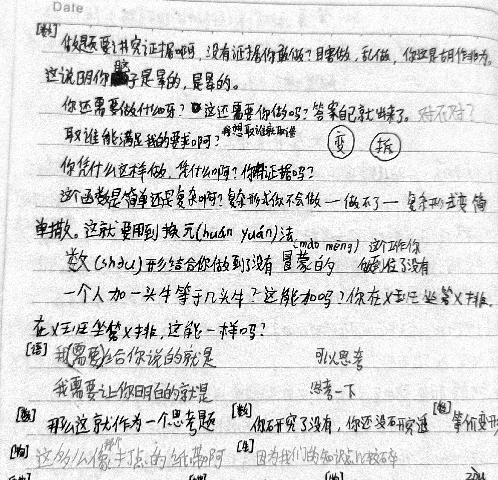 Date
[数] 做题要讲究证据啊,没有证据你敢做?瞎做,乱做,你这是胡作非为。
这说明你脑子是晕的,是晕的。
你还需要做什么呀?这还需要你做吗?答案自己就出来了。对不对?
取谁能满足我的要求啊?我想取谁就取谁 变 拆
你凭什么这样做,凭什么啊?你有证据吗?
这个函数是简单还是复杂啊?复杂形式你不会做一做不了一复杂形式变简
单撒。这就要用到换元(huán yuán)法
数(shòu)形结合你做到了没有 冒蒙的(mào mēng) 这工作你做到位了没有
一个人加一头牛等于几头牛?这能加吗?你在X王座坐第X排,
在X王座坐第X排,这能一样吗?
[语] 我(需要)给你说的就是 可以思考
我需要让你明白的就是 思考一下
[数] 那么这就作为一个思考题 [数] 你研究了没有,你还没研究透 [数] 等价变形
[物] 这多么像打点的纸带啊 [生] 因为我们的知识点比较碎